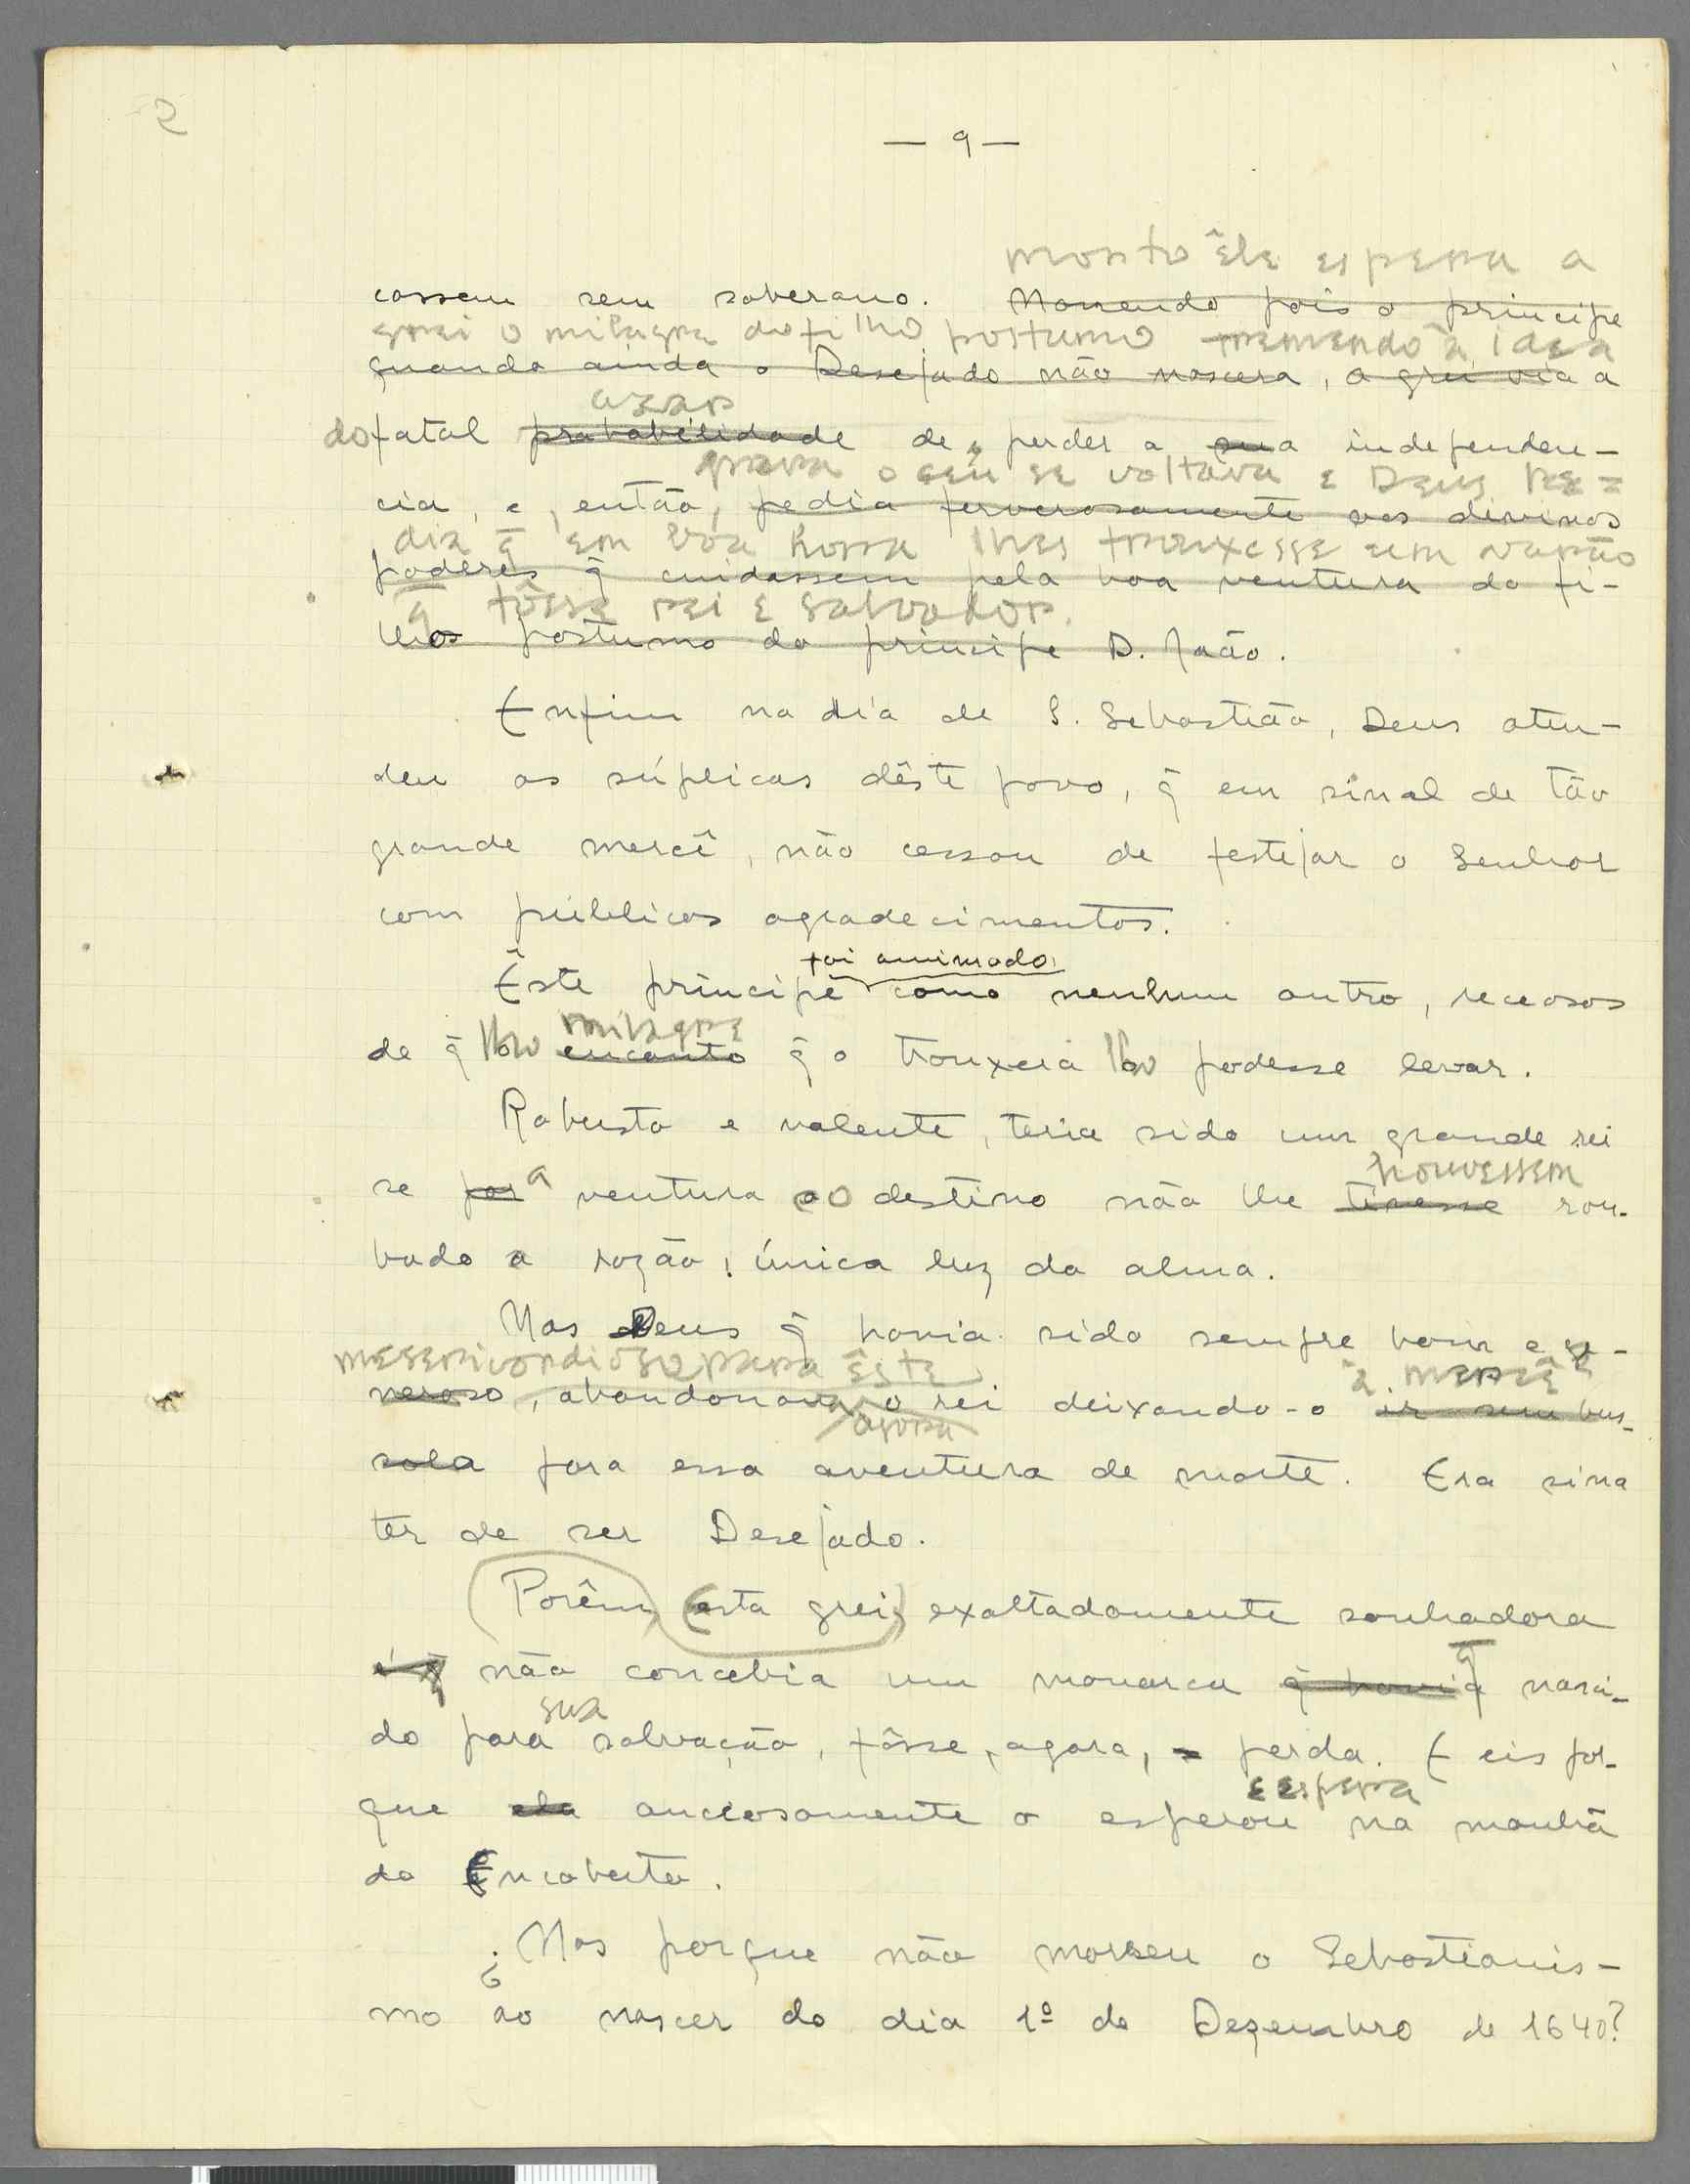 2
— 9 —
morto êle espera a
cassem sem soberano. Morrendo pois o principe
grei o milagre do filho postumo tremendo à idea
quando ainda o Desejado não nascera, a grei via a
azar
do fatal probabilidade de perder a sua independen-
para o céu se voltava e Deus pe=
cia, e, então, pedia fervorosamente aos divinos
dia q̃ em boa hora lhes trouxesse um varão
poderes q̃ cuidassem pela boa ventura do fi-
q̃ fôsse rei e salvador.
lho postumo do principe D. João.
Enfim no dia de S. Sebastião, Deus aten-
deu as súplicas dêste povo, q̃ em sinal de tão
grande mercê, não cessou de festejar o Senhor
com públicos agradecimentos.
foi animado
Êste principe como nenhum outro, receosos
milagre
de q̃ lho encanto q̃ o trouxera lho podesse levar.
Robusto e valente, teria sido um grande rei
houvessem
se por a ventura o destino não lhe tivesse rou-
bado a razão, única luz da alma.
Mas Deus q̃ havia sido sempre bom e ge-
misericordioso para êste à mercê
neroso, abandonava o rei deixando-o ir sem bus-
agora
sola para essa aventura de morte. Era sina
ter de ser Desejado.
Porêm esta grei, exaltadamente sonhadora
q̃
é q̃ não concebia um monarca q̃ havia nasci-
sua
do para salvação, fôsse, agora, perda. E eis por-
e espera
que ela anciosamente o esperou na manhã
do Encoberto.
¿Mas porque não morreu o Sebastianis-
mo ao nascer do dia 1º de Dezembro de 1640?